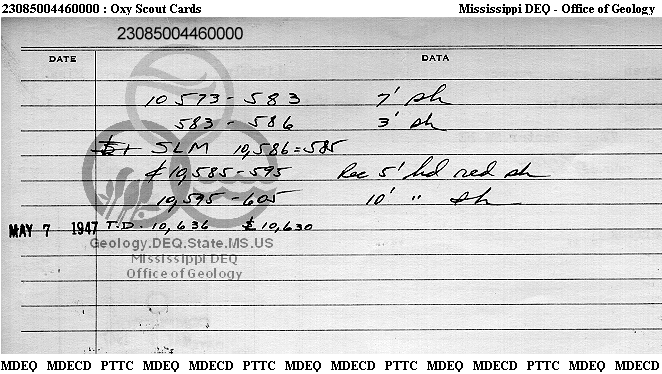 23085004460000 : Oxy Scout Cards Mississippi DEQ - Office of Geology
23085004460000
DATE DATA
10 573 - 583 7' sh
583 - 586 3' sh
SLM 10,586 = 585
¢ 10,585 - 595 Rec 5' hd red sh
10,595 - 605 10' " sh
MAY 7 1947 T.D. 10,636 10,630
Geology.DEQ.State.MS.US
Mississippi DEQ
Office of Geology
MDEQ MDECD PTTC MDEQ MDECD PTTC MDEQ MDECD PTTC MDEQ MDECD PTTC MDEQ MDECD